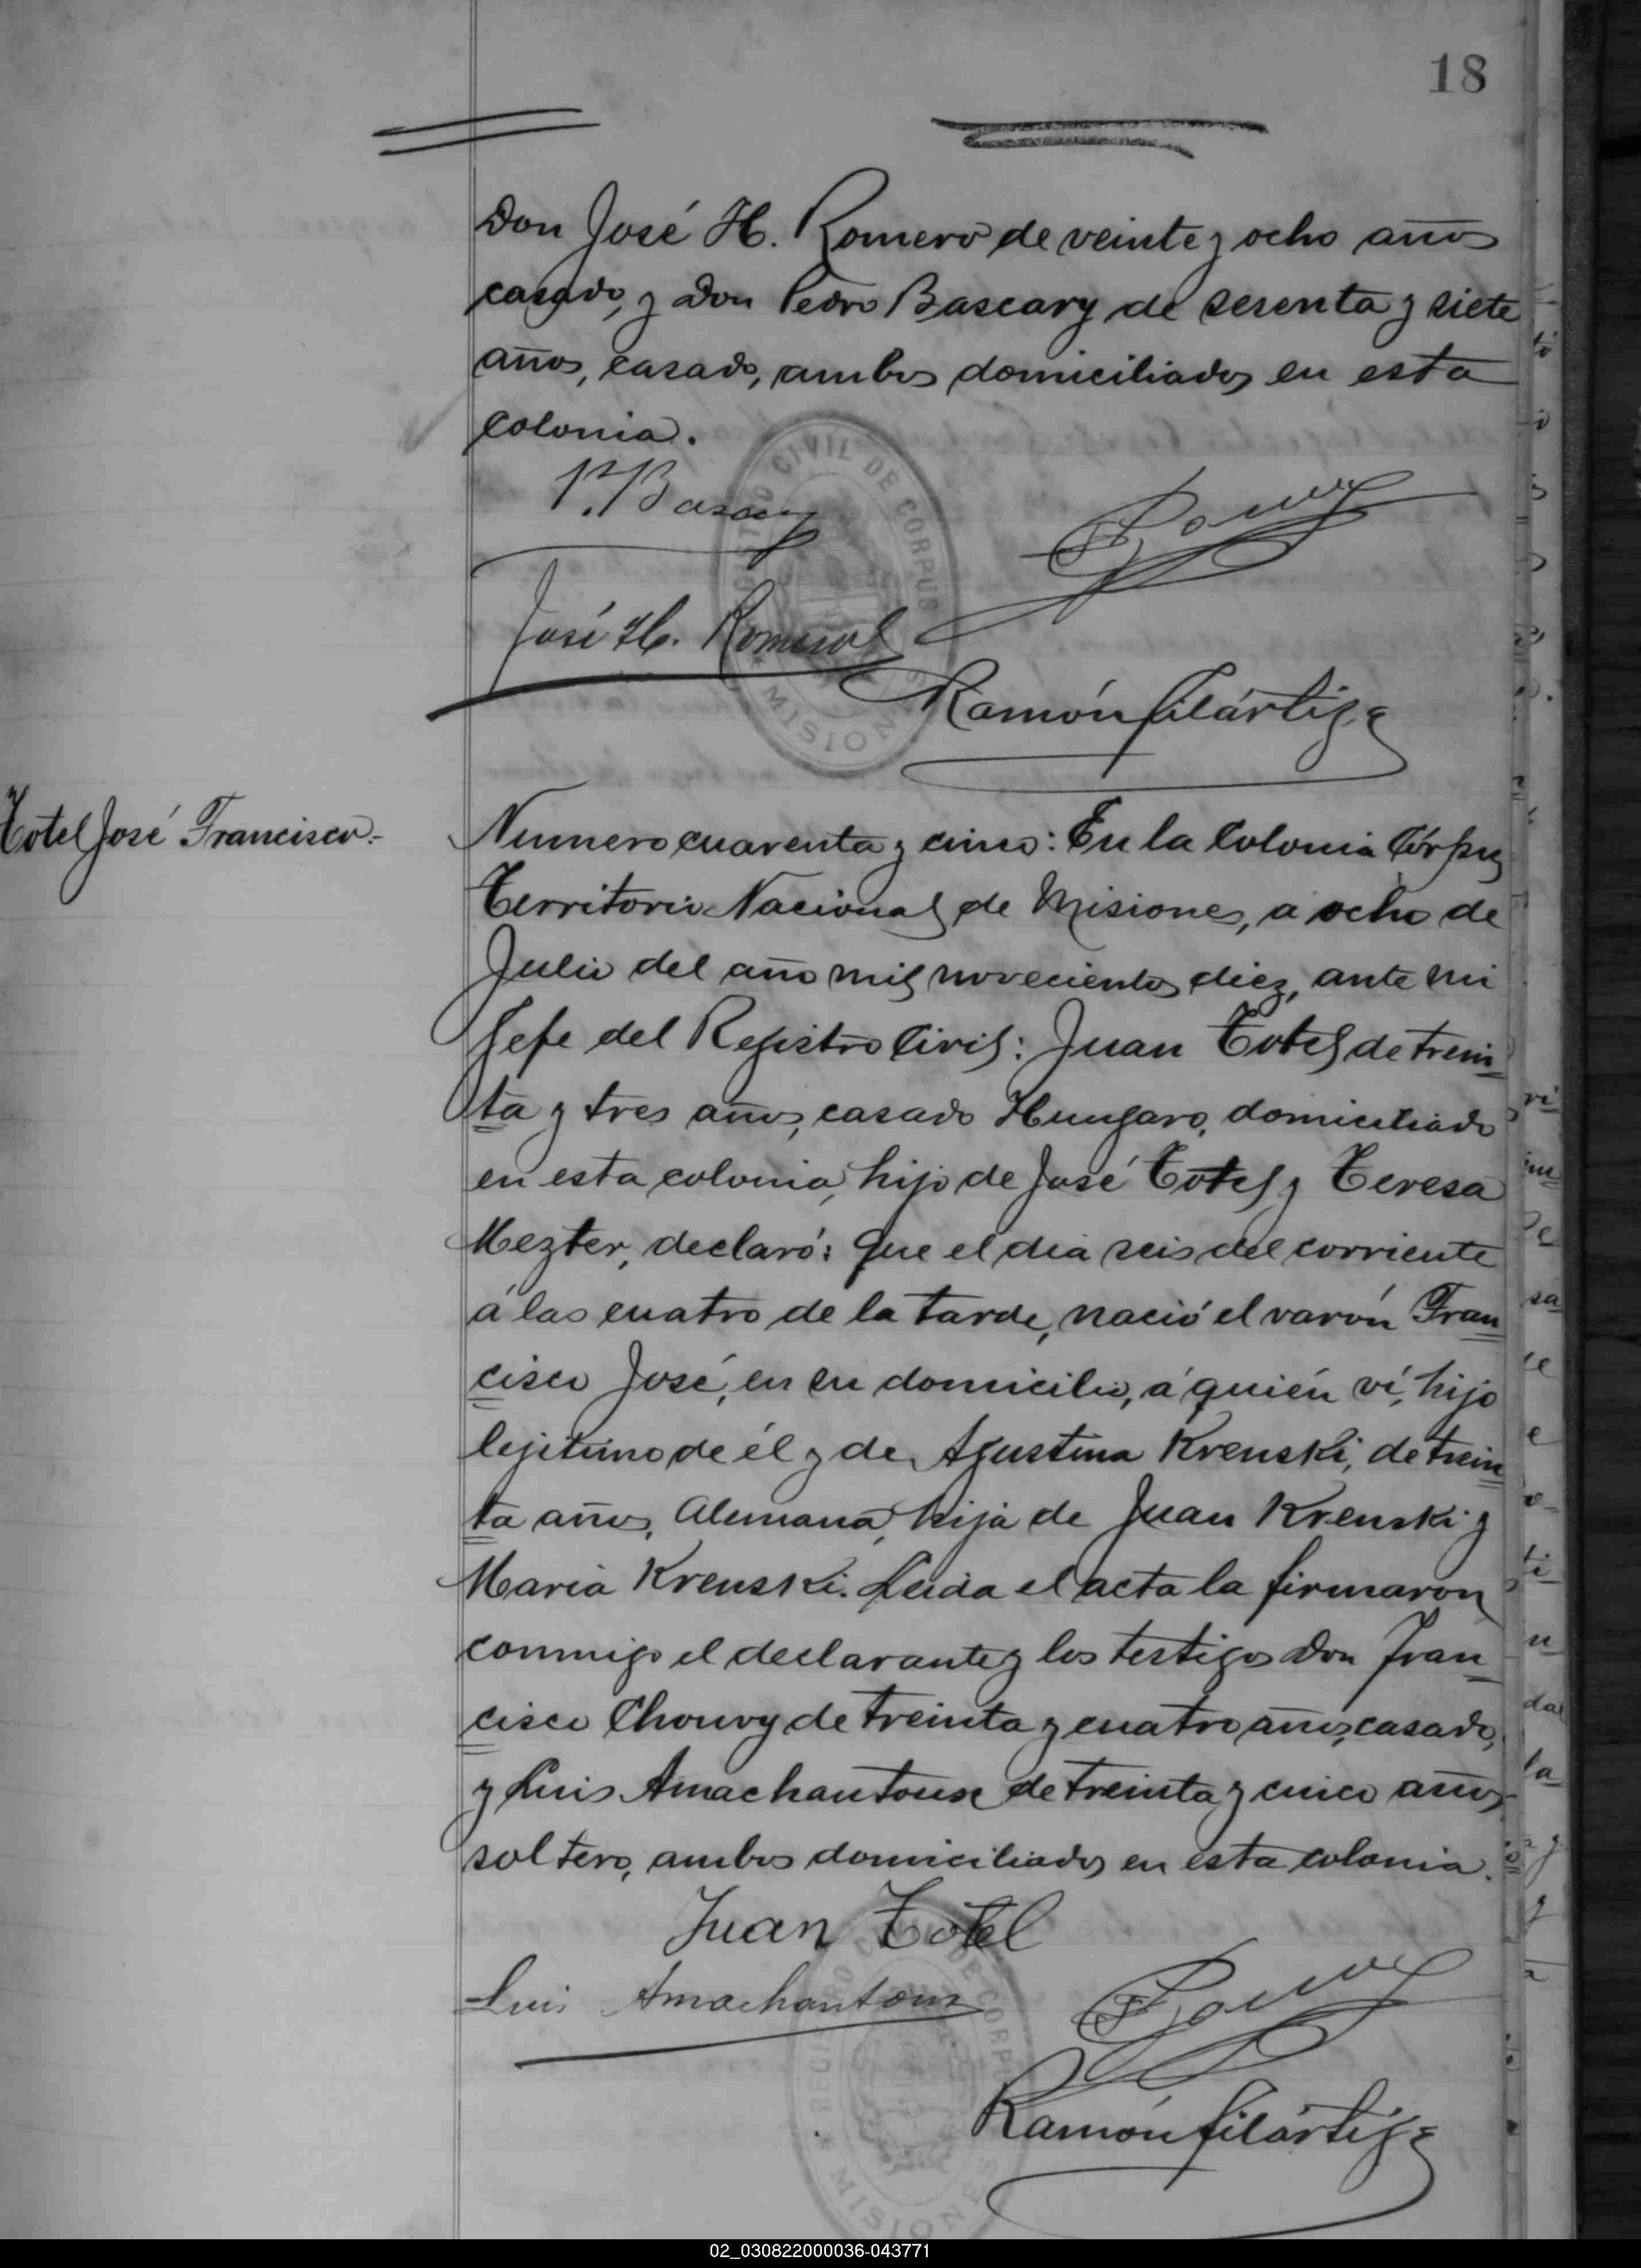 18
Don José H. Romero de veinte y ocho años
casado, y Don Pedro Bascary de sesenta y siete
años, casado, ambos domiciliados en esta
colonia.
P. Bascary
José H. Romero
Ramón Filártiga
REGISTRO CIVIL DE CORPUS
MISIONES
Totel José Francisco.-
Numero cuarenta y cinco: En la Colonia Córpus
Territorio Nacional de Misiones, a ocho de
Julio del año mil novecientos diez, ante mi
Jefe del Registro Civil: Juan Totel de trein
ta y tres años, casado Hungaro, domiciliado
en esta colonia, hijo de José Totel y Teresa
Mezter, declaró: Que el dia seis del corriente
á las cuatro de la tarde, nació el varón Fran
cisco José, en su domicilio, á quién ví, hijo
lejitimo de él y de Agustina Krenski, de trein
ta años, Alemana, hija de Juan Krenski y
Maria Krenski. Leida el acta la firmaron
conmigo el declarante y los testigos Don Fran
cisco Chouvy de treinta y cuatro años, casado,
y Luis Amachantoux de treinta y cinco años
soltero, ambos domiciliados en esta colonia.
Juan Totel
Luis Amachantoux
Ramón Filártiga
REGISTRO CIVIL DE CORPUS
MISIONES
02_030822000036-043771